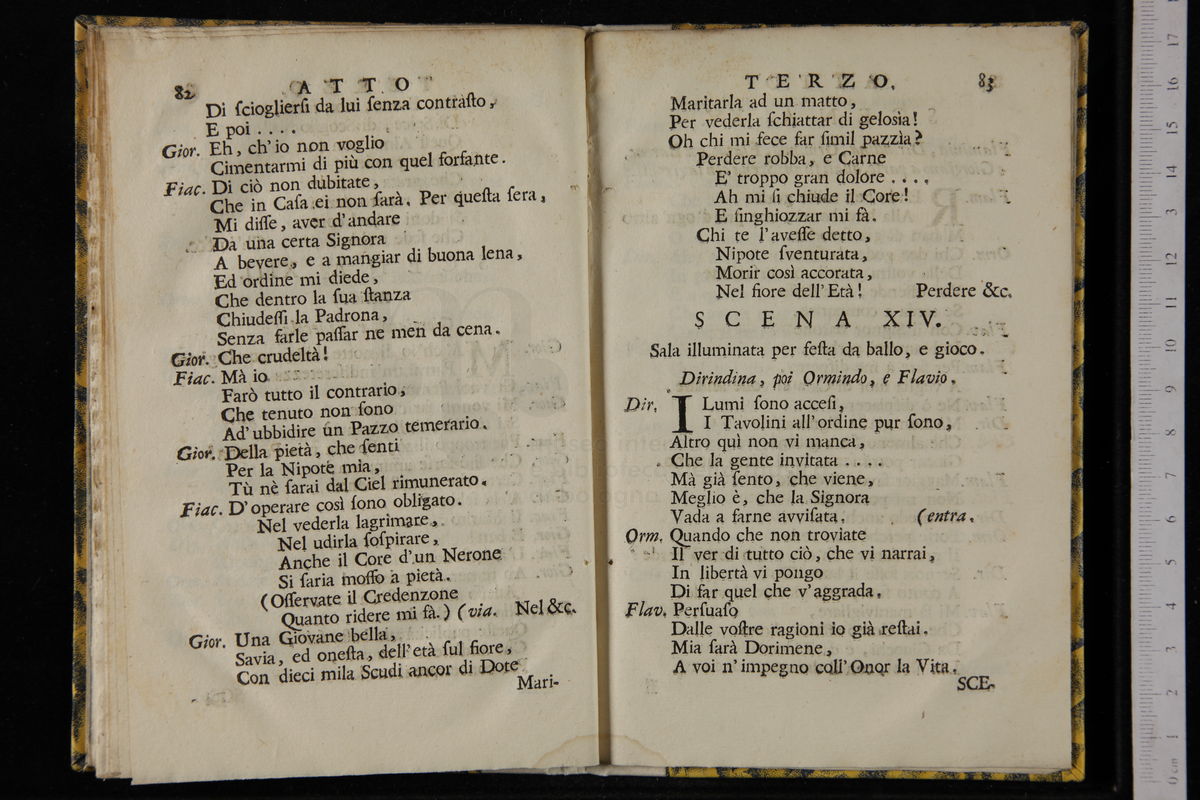 82 ATTO
Di ſcioglierſi da lui ſenza contraſto,
E poi . . . .
Gior. Eh, ch'io non voglio
Cimentarmi di più con quel forfante.
Fiac. Di ciò non dubitate,
Che in Caſa ei non ſarà. Per queſta ſera,
Mi diſſe, aver d'andare
Da una certa Signora
A bevere, e a mangiar di buona lena,
Ed ordine mi diede,
Che dentro la ſua ſtanza
Chiudeſſi la Padrona,
Senza farle paſſar ne men da cena.
Gior. Che crudeltà!
Fiac. Mà io
Farò tutto il contrario,
Che tenuto non ſono
Ad'ubbidire un Pazzo temerario.
Gior. Della pietà, che ſenti
Per la Nipote mia,
Tù nè ſarai dal Ciel rimunerato.
Fiac. D'operare così ſono obligato.
Nel vederla lagrimare,
Nel udirla ſoſpirare,
Anche il Core d'un Nerone
Si ſaria moſſo a pietà.
(Oſſervate il Credenzone
Quanto ridere mi fà.) (via. Nel &c.
Gior. Una Giovane bella,
Savia, ed oneſta, dell'età ſul fiore,
Con dieci mila Scudi ancor di Dote
Mari-
TERZO. 83
Maritarla ad un matto,
Per vederla ſchiattar di gelosìa!
Oh chi mi fece far ſimil pazzìa?
Perdere robba, e Carne
E' troppo gran dolore . . . .
Ah mi ſi chiude il Core!
E ſinghiozzar mi fà.
Chi te l'aveſſe detto,
Nipote ſventurata,
Morir così accorata,
Nel fiore dell'Età! Perdere &c.
SCENA XIV.
Sala illuminata per feſta da ballo, e gioco.
Dirindina, poi Ormindo, e Flavio.
Dir. I Lumi ſono acceſi,
I Tavolini all'ordine pur ſono,
Altro quì non vi manca,
Che la gente invitata . . . .
Mà già ſento, che viene,
Meglio è, che la Signora
Vada a farne avviſata. (entra.
Orm. Quando che non troviate
Il ver di tutto ciò, che vi narrai,
In libertà vi pongo
Di far quel che v'aggrada.
Flav. Perſuaſo
Dalle voſtre ragioni io già reſtai.
Mia ſarà Dorimene,
A voi n'impegno coll'Onor la Vita.
SCE-
0 cm 1 2 3 4 5 6 7 8 9 10 11 12 13 14 15 16 17